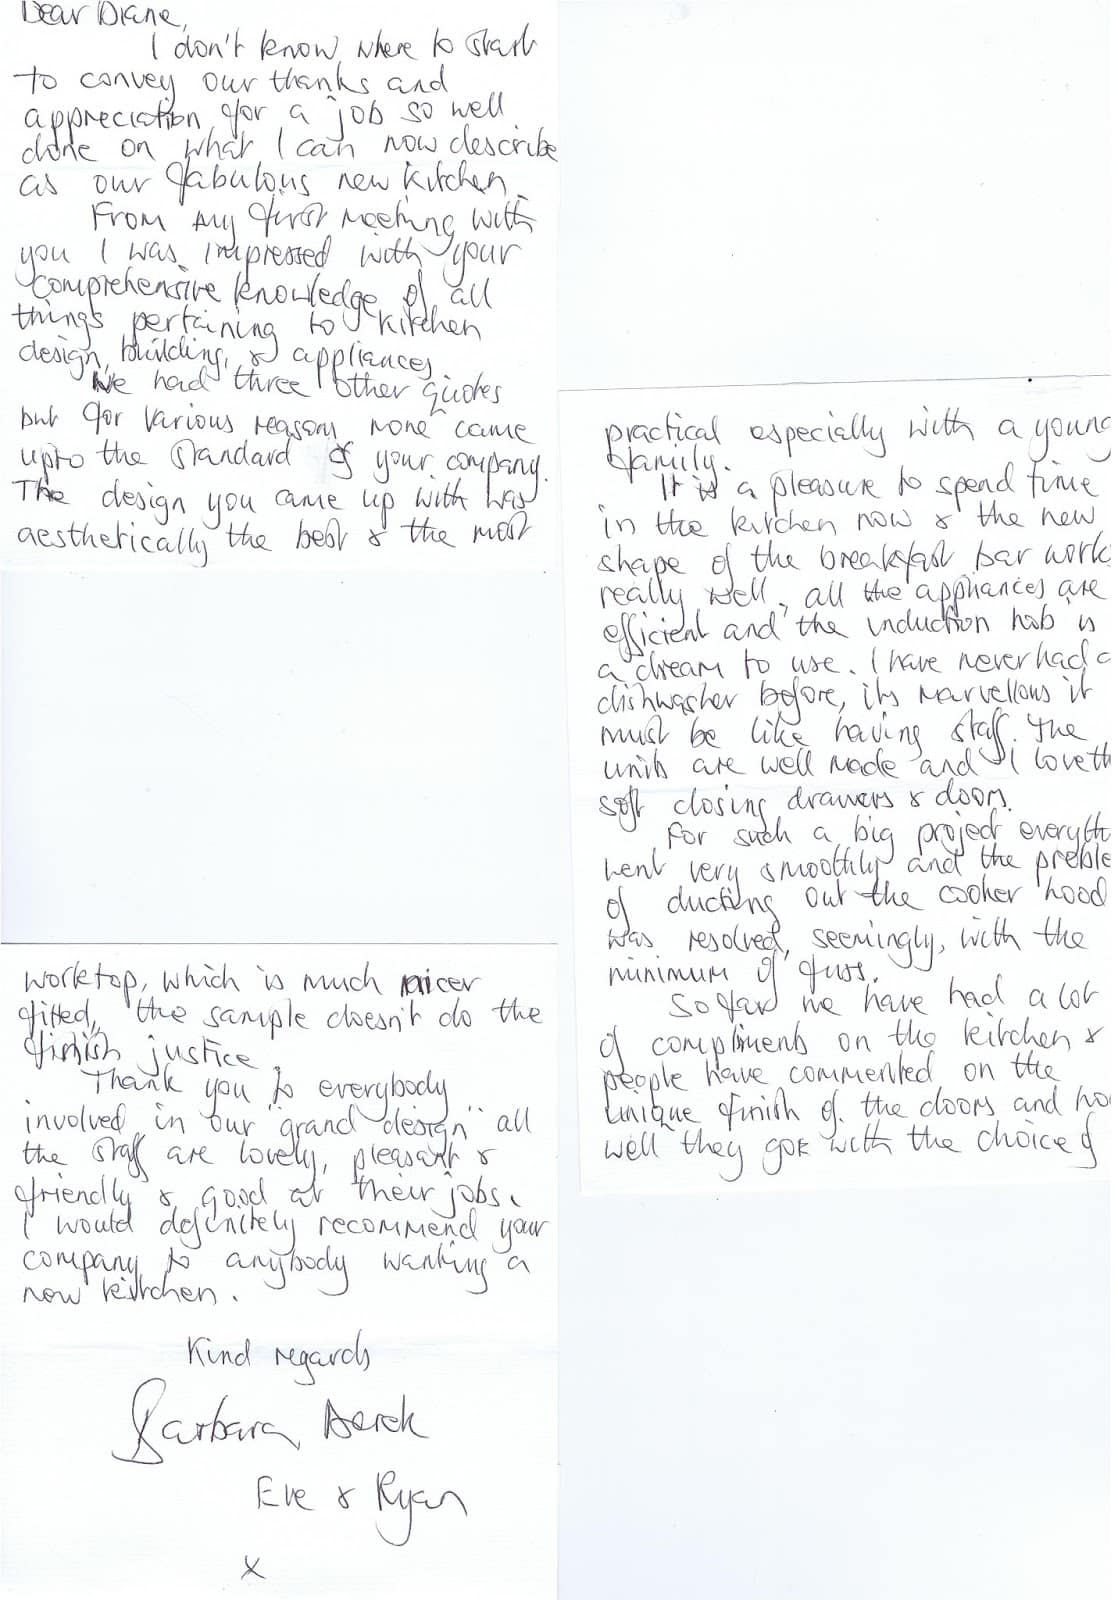 Dear Diane,
I don't know where to start
to convey our thanks and
appreciation for a job so well
done on what I can now describe
as our fabulous new kitchen.
From my first meeting with
you I was impressed with your
comprehensive knowledge of all
things pertaining to kitchen
design, building, & appliances
We had three other quotes
but for various reasons none came
upto the standard of your company.
The design you came up with was
aesthetically the best & the most
practical especially with a young
family.
It is a pleasure to spend time
in the kitchen now & the new
shape of the breakfast bar work
really well, all the appliances are
efficient and the induction hob is
a dream to use. I have never had a
dishwasher before, its marvellous it
must be like having staff. The
units are well made and I love th
soft closing drawers & doors.
For such a big project everyth
went very smoothly and the proble
of ducting out the cooker hood
was resolved, seemingly, with the
minimum of fuss.
So far we have had a lot
of compliments on the kitchen &
people have commented on the
unique finish of the doors and ho
well they go with the choice of
worktop, which is much nicer
fitted, the sample doesn't do the
finish justice.
Thank you to everybody
involved in our "grand design" all
the staff are lovely, pleasant &
friendly & good at their jobs.
I would definitely recommend your
company to anybody wanting a
new kitchen.
Kind regards
Barbara, Derek
Eve & Ryan
x